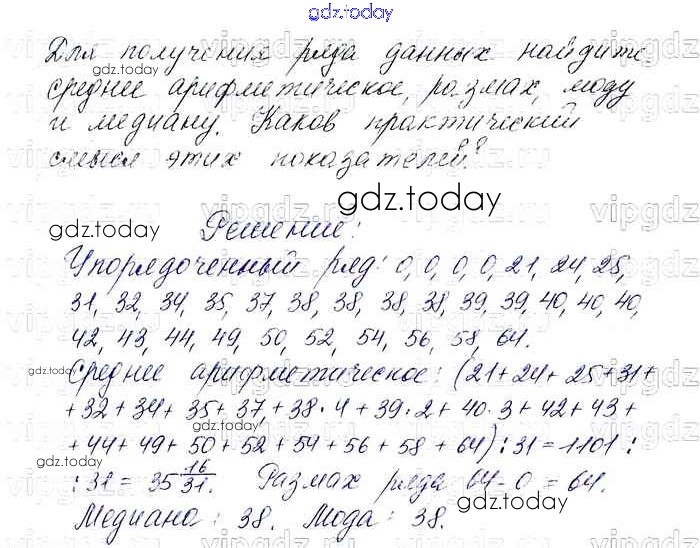 gdz.today
Для получения ряда данных найдите
gdz.today
среднее арифметическое, размах, моду
и медиану. Каков практический
смысл этих показателей?
gdz.today
gdz.today
Решение:
Упорядоченный ряд: 0, 0, 0, 0, 21, 24, 25,
31, 32, 34, 35, 37, 38, 38, 38, 38, 39, 39, 40, 40, 40,
42, 43, 44, 49, 50, 52, 54, 56, 58, 64.
gdz.today
Среднее арифметическое: (21+24+25+31+
+32+34+35+37+38·4+39·2+40·3+42+43+
+44+49+50+52+54+56+58+64):31=1101:
gdz.today
:31 = 35 16/31. Размах ряда 64-0=64.
gdz.today
Медиана: 38. Мода: 38.